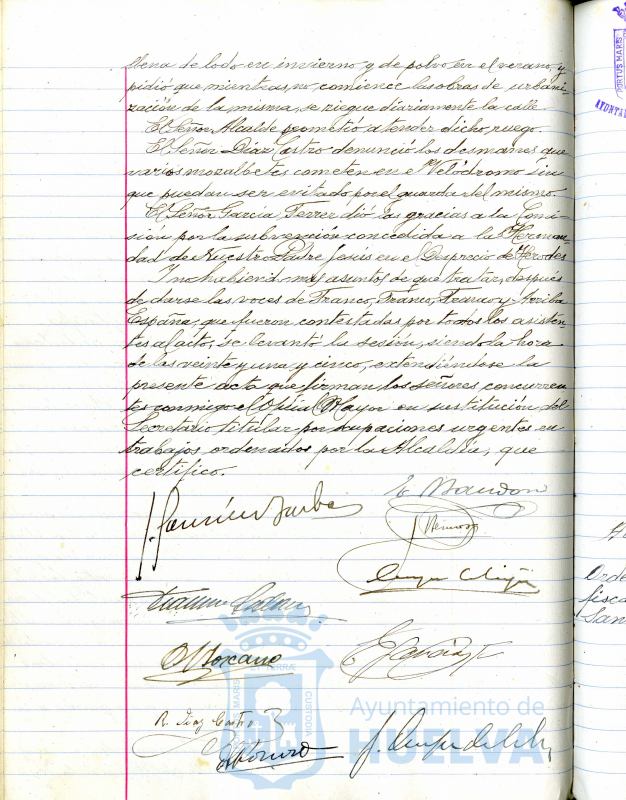 llena de lodo en invierno y de polvo en el verano, y
pidió que mientras no comience las obras de urbani-
zación de la misma, se riegue diariamente la calle.
El Señor Alcalde prometió atender dicho ruego.
El Señor Diaz Castro denunció los desmanes que
varios mozalbetes cometen en el Velódromo sin
que puedan ser evitado por el guarda del mismo.
El Señor García Ferrer dió las gracias a la Comi-
sión por la subvención concedida a la Herman-
dad de Nuestro Padre Jesús en el Desprecio de Herodes
Y no habiendo mas asuntos de que tratar, después
de darse las voces de Franco, Franco, Franco y Arriba
España, que fueron contestadas por todos los asisten-
tes al acto, se levantó la sesión, siendo la hora
de las veinte y una y cinco, extendiéndose la
presente acta que firman los señores concurren
tes conmigo el Oficial Mayor en sustitución del
Secretario titular por ocupaciones urgentes en
trabajos ordenados por la Alcaldía, que
certifico.
R. Diaz Castro
PORTUS MARIS
CUSTODIA
Ayuntamiento de
HUELVA
PORTUS MARIS
AYUNTA
Orde
fisca
San